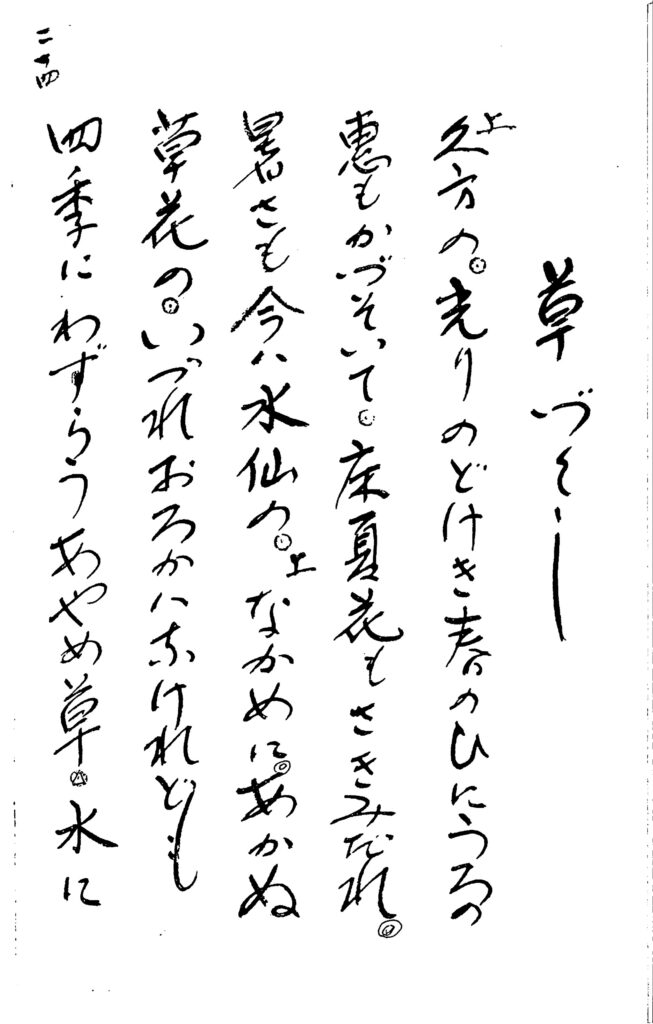 草づくし
上
久方の。光りのどけき春のひにうるの
惠もかづそいて。床夏花もさきみだれ。
暑さも今ハ水仙の。上なかめに。あかぬ
草花の。いづれおろかハなけれども
四季にわずらうあやめ草。水に
二十四